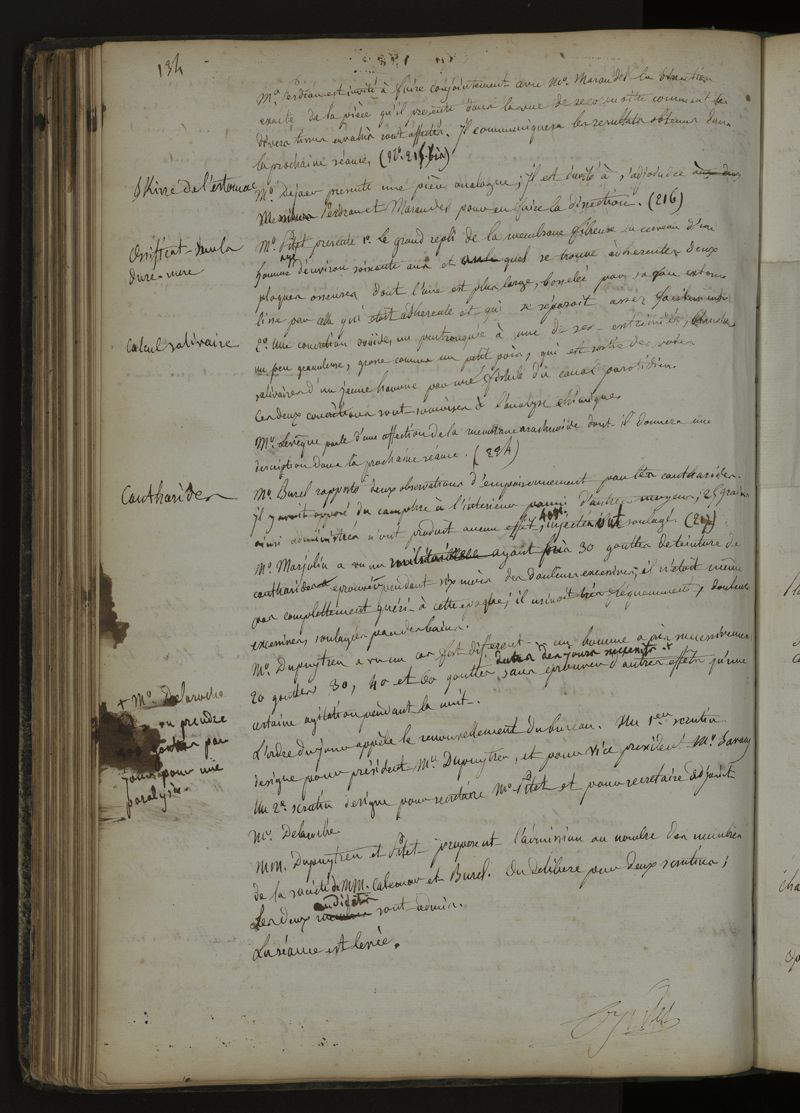 134
Mr. Perdrau est invité à faire conjointement avec Mr. Marandel la dissection
exacte de la pièce qu'il présente dans la vue de reconnoitre comment les
divers tissus envahis sont affectés. Il communiquera les resultats obtenus dans
la prochaine séance. (No. 215 bis)
Skirre de l'estomac
Mr. Dejaer présente une pièce analogue; Il est invité à s'adjoindre
Messieurs Perdrau et Marandel pour en faire la dissection. (216)
Ossificat. de la
dure-mere
Mr. Pitet présente 1o. Le grand repli de la membrane fibreuse du cerveau d'un
homme agé d'environ soixante ans et auquel se trouve adherentes deux
plaques osseuses dont l'une est plus large, bosselée par sa face externe
lisse par celle qui etoit adherente et qui se séparoit assez facilement
calcul salivaire
2o. Une concrétion ovoide, un peu tronquée à une de ses extrémités, blanche
un peu granuleuse, grosse comme un petit pois, qui est sortie des voies
salivaires d'un jeune homme par une fistule du canal parotidien.
Ces deux concrétions sont soumises à l'analyse chimique
Mr. Levêque parle d'une affection de la membrane arachnoide dont il donnera une
description dans la prochaine séance. (224)
Cantharides
Mr. Burel rapporte deux observations d'empoisonnement par les cantharides.
Il y avoit opposé du camphre à l'interieur parmi d'autres moyens; 25 grains
ainsi administrés n'ont produit aucun effet, injectés ont soulagé. (217)
Mr. Marjolin a vu un ayant pris 30 gouttes de teinture de
cantharides eprouver pendant six mois des douleurs excessives; il n'etoit même
pas complettement guéri à cette époque; il urinoit très fréquemment, douleurs
excessives, soulagées par des bains.
Mr. Dupuytren a vu un cas fort different - un homme a pris successivement
dans des jours successifs +
20 gouttes 30, 40 et 60 gouttes, sans éprouver d'autres effets qu'une
certaine agitation pendant la nuit.
+ Mr. Delaroche
vu prendre
gouttes par
jour pour une
paralysie.
L'ordre du jour appèle le renouvellement du bureau. Un 1er scrutin
designe pour président Mr. Dupuytren, et pour vice president Mr. Savary
Un 2e. scrutin designe pour secrétaire Mr. Pitet et pour secretaire adjoint
Mr. Delaroche
MM. Dupuytren et Pitet proposent l'admission au nombre des membres
de la société de MM. et Burel. On delibère par deux scrutins;
candidats
Les deux sont admis.
La séance est levée.